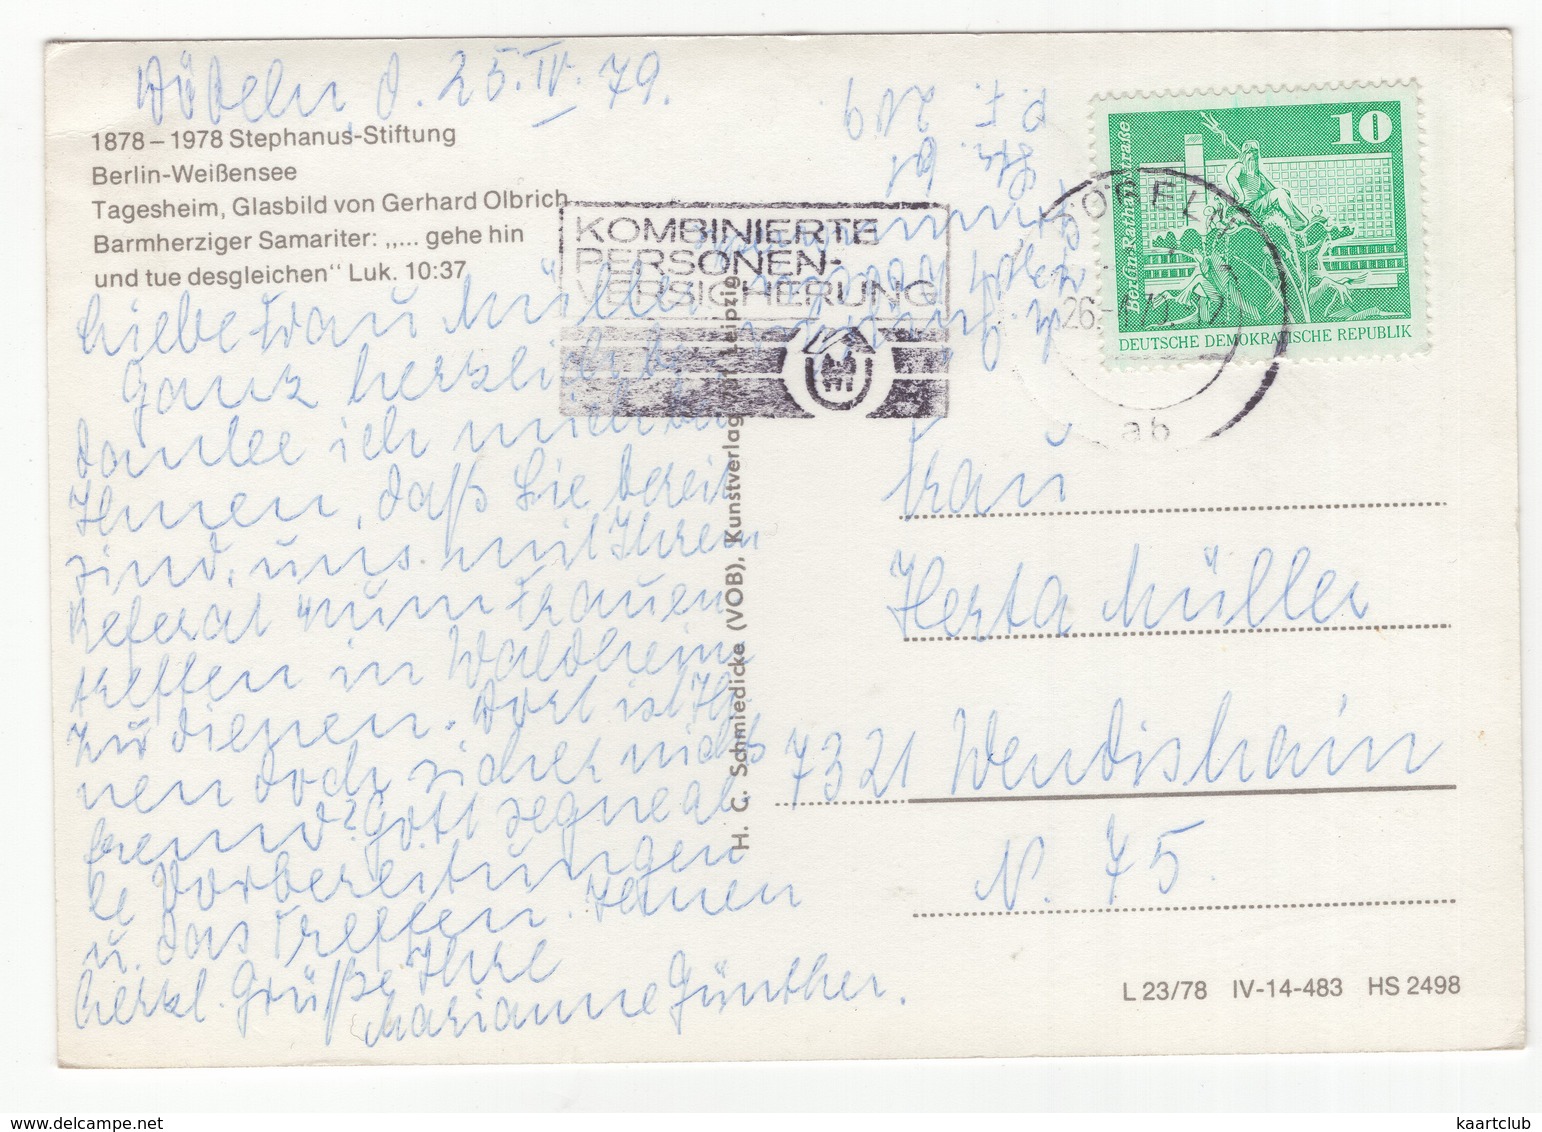 Döbeln, d. 25. IV. 79.
1878 – 1978 Stephanus-Stiftung
Berlin-Weißensee
Tagesheim, Glasbild von Gerhard Olbrich
Barmherziger Samariter: „... gehe hin
und tue desgleichen" Luk. 10:37
Liebe Frau Müller
Ganz herzlich be
danke ich mich bei
Ihnen, daß Sie bereit
sind, uns mit Ihrem
Referat zum Frauen
treffen in Waldheim
zu dienen. Dort ist Ih
nen doch sicher nichts
fremd? Gott segne al
le Vorbereitungen
u. das Treffen. Ihnen
herzl. Grüße Ihre
Marianne Günther.
Str. 61
P. F. 209
KOMBINIERTE
PERSONEN-
VERSICHERUNG
H. C. Schmiedicke (VOB), Kunstverlag, Leipzig
10
Berlin-Rathausstraße
DEUTSCHE DEMOKRATISCHE REPUBLIK
DÖBELN
ab
Frau
Herta Müller
7321 Wendishain
N. 75.
L 23/78 IV-14-483 HS 2498
delcampe.net
kaartclub